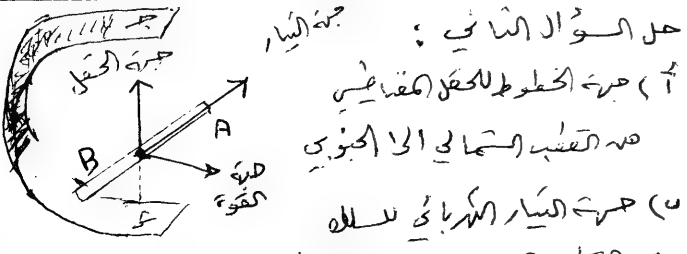 حل السؤال الثاني :
أ) جهة الخطوط للحقل المغناطيسي
من القطب الشمالي الى الجنوبي
ب) جهة التيار الكهربائي للسلك
جهة التيار
جـ
جهة الحقل
A
B
جهة
القوة